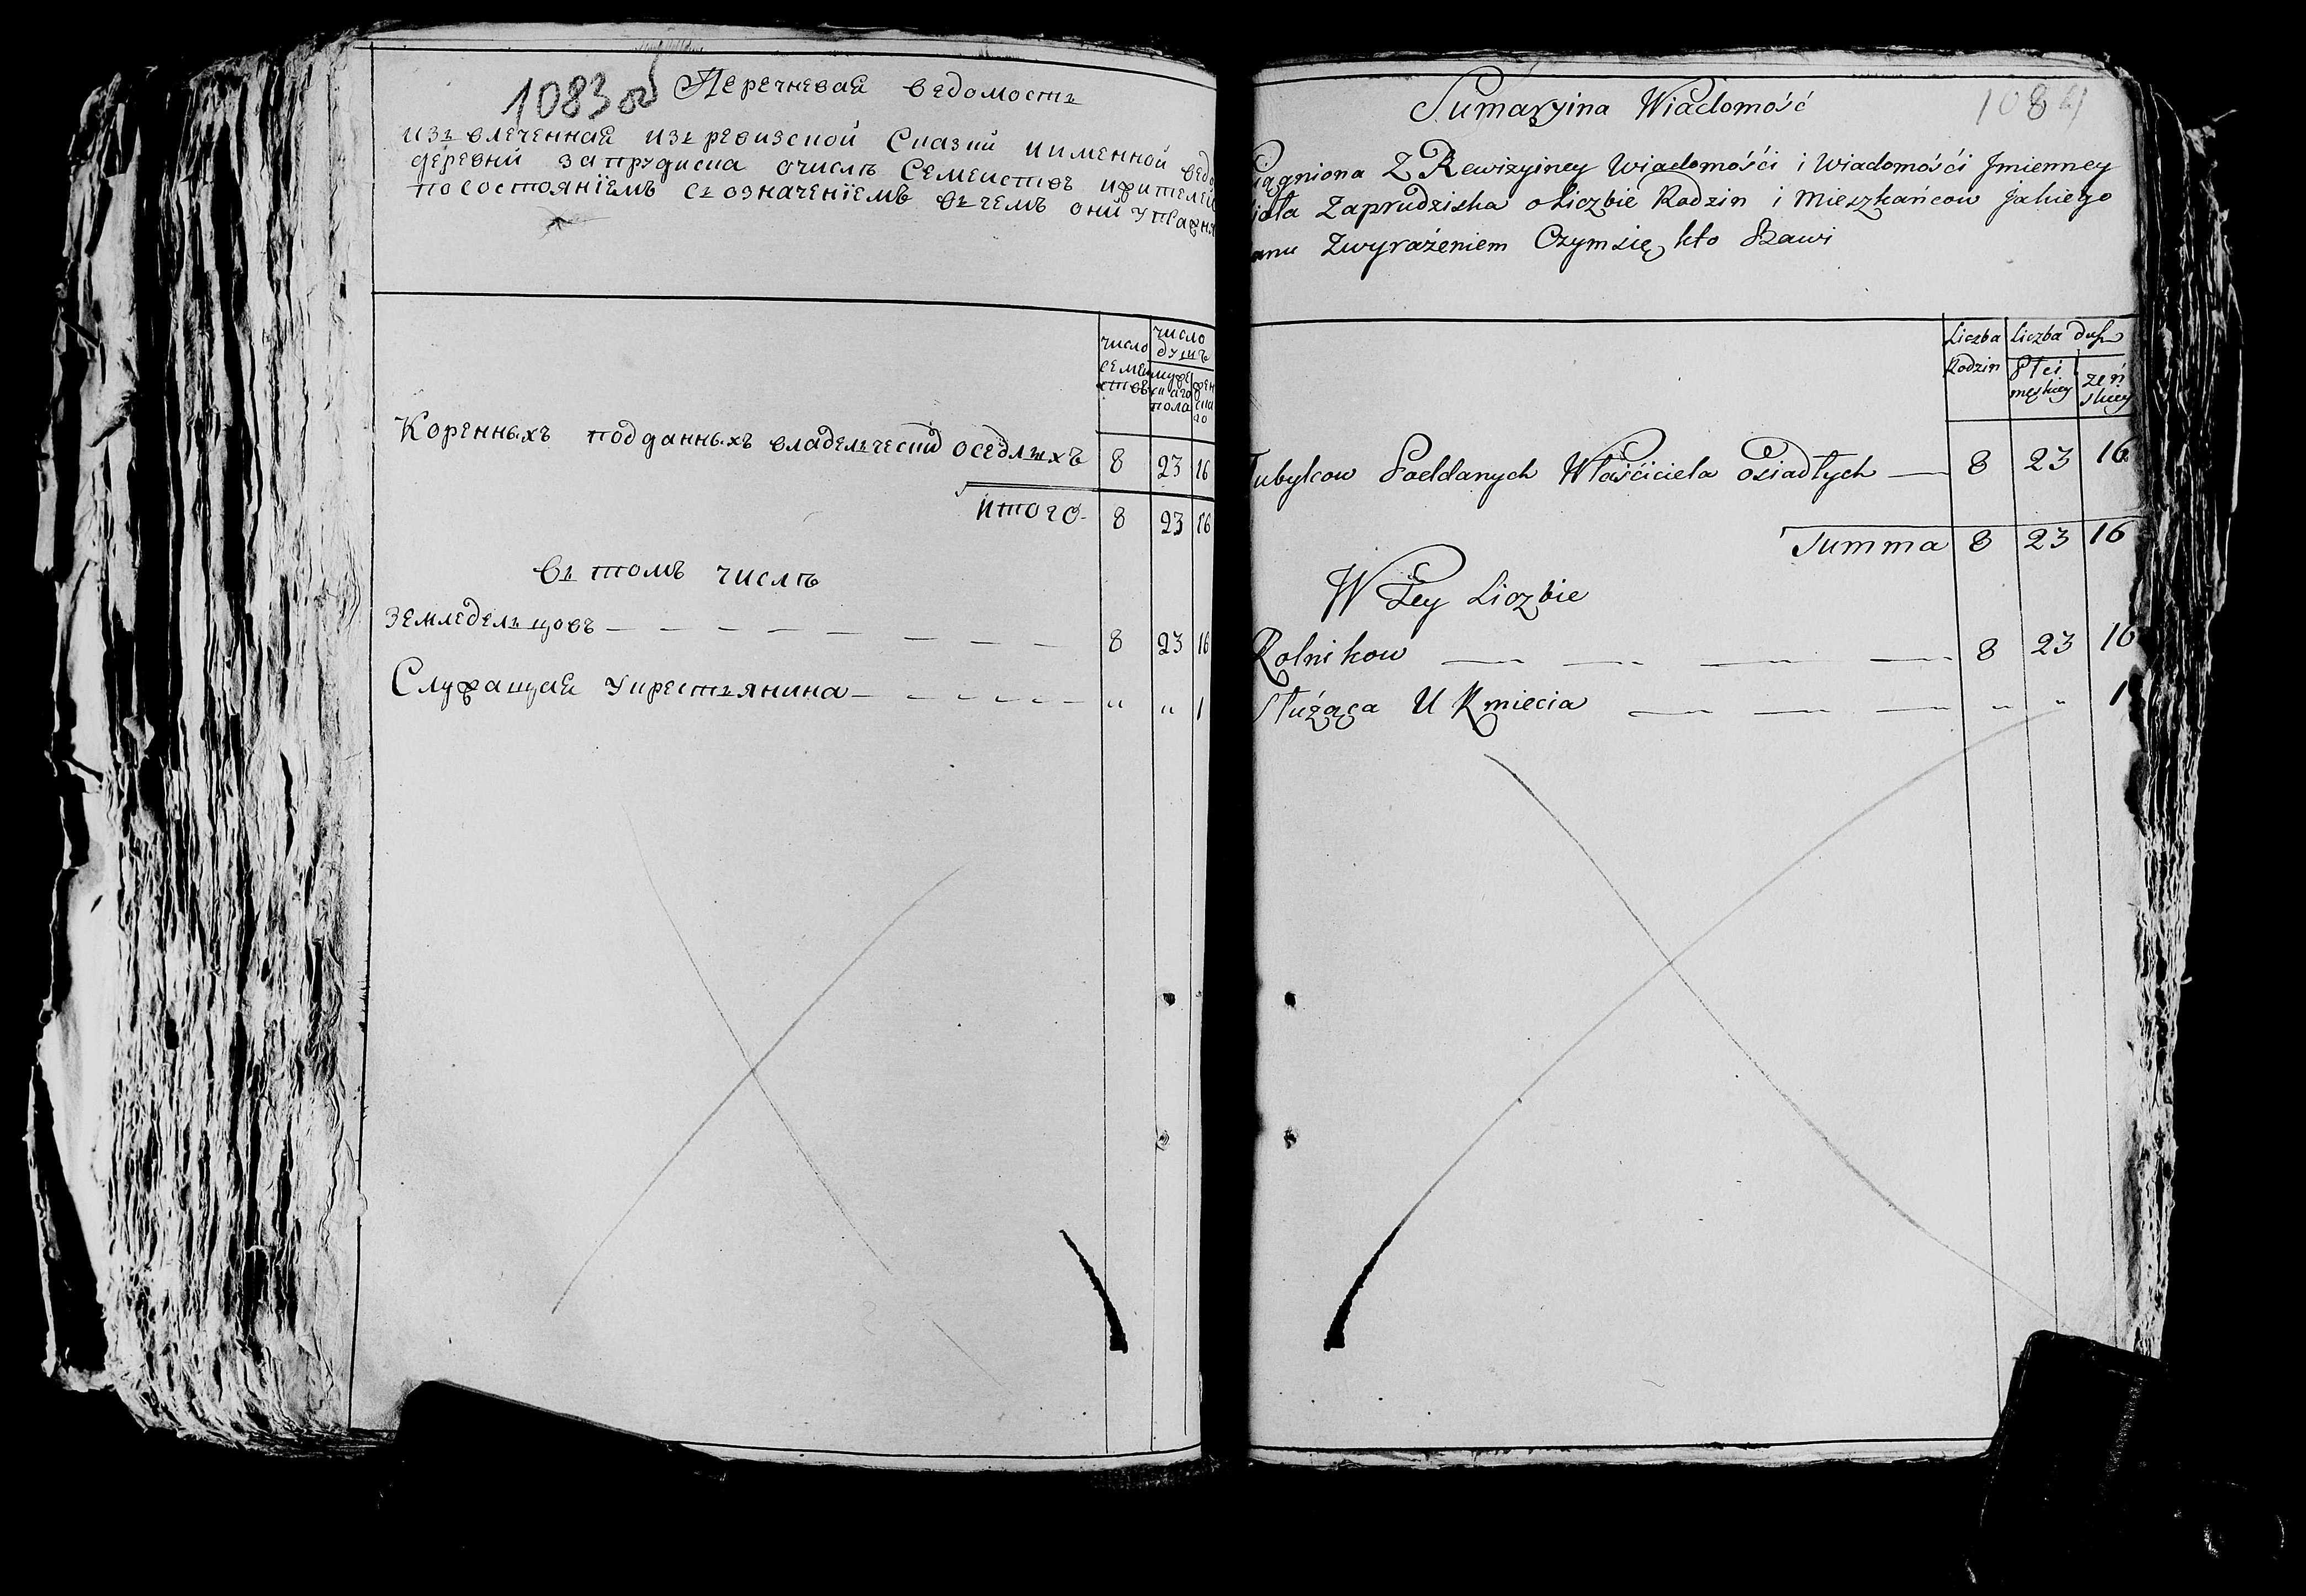 1083 об
Перечневая ведомость
изъ влеченная изъ ревизской Сказки и именной
деревни запрудиска очислѣ Семействъ ижителей
посостоянїемъ съ означенїемъ въ чемъ они
число
семействъ
число
душъ
мужескаго
пола
Коренныхъ подданныхъ владельческих оседлыхъ 8 23 16
итого 8 23 16
Въ томъ числѣ
земледельцовъ 8 23 16
Служащая укрестьянина " " 1
1084
Sumaryina Wiadomość
Z Rewizyiney Wiadomośći i Wiadomośći Jmienney
Zaprudziska o Liczbie Rodzin i Mieszkańcow Jakiego
Zwyrażeniem Czym się kto Bawi
Liczba
Rodzin
Liczba dusz
Płci
męskiey
żeń
skiey
Poddanych Właściciela Osiadłych 8 23 16
Summa 8 23 16
W Tey Liczbie
Rolnikow 8 23 16
Służąca U Kmiecia " " 1